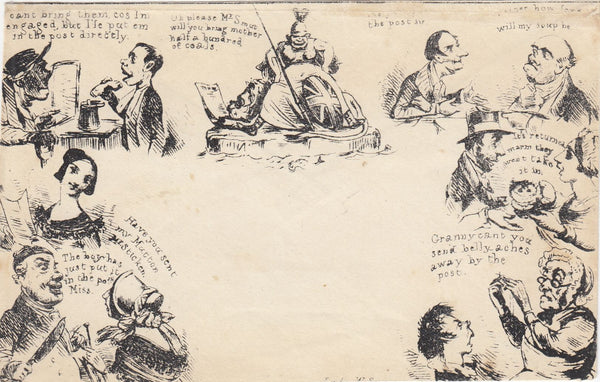 cant bring them cos Im
engaged, but I'le put em
in the post directly.
Oh please Mr Smut
will you bring mother
half a hundred
of coals.
the post sir
how
will my soup be
it's returned
warm they
wont take
it in.
Have you sent
my Mutton
Mr Sticken
The boy has
just put it
in the post
Miss.
Granny cant you
send belly aches
away by the
post.